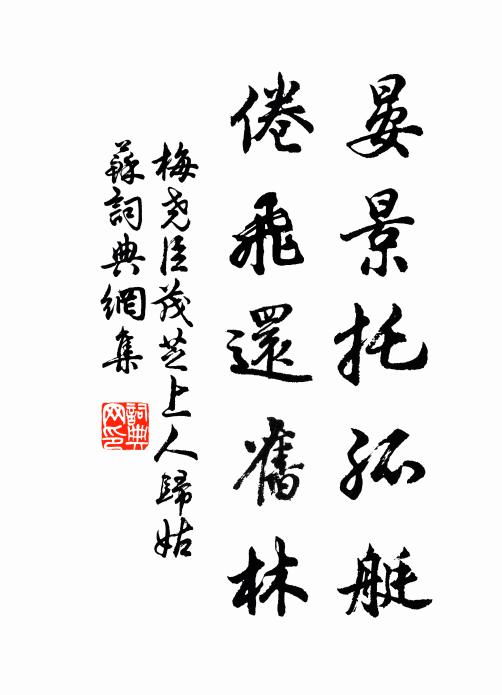 晏景托孤艇
倦飛還舊林
梅尧臣茂芝上人歸姑
蘇詞典網集
詞典网印